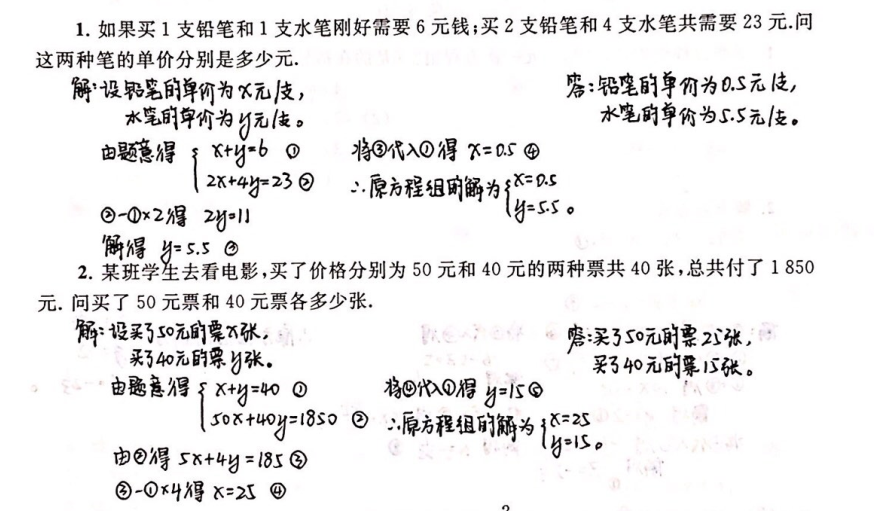 1. 如果买1支铅笔和1支水笔刚好需要6元钱;买2支铅笔和4支水笔共需要23元.问
这两种笔的单价分别是多少元.
解:设铅笔的单价为x元/支,
水笔的单价为y元/支。
由题意得 { x+y=6 ①
2x+4y=23 ②
②-①×2得 2y=11
解得 y=5.5 ③
将③代入①得 x=0.5 ④
∴原方程组的解为 { x=0.5
y=5.5。
答:铅笔的单价为0.5元/支,
水笔的单价为5.5元/支。
2. 某班学生去看电影,买了价格分别为50元和40元的两种票共40张,总共付了1850
元. 问买了50元票和40元票各多少张.
解:设买了50元的票x张,
买了40元的票y张。
由题意得 { x+y=40 ①
50x+40y=1850 ②
由②得 5x+4y=185 ③
③-①×4得 x=25 ④
将④代入①得 y=15 ⑤
∴原方程组的解为 { x=25
y=15。
答:买了50元的票25张,
买了40元的票15张。